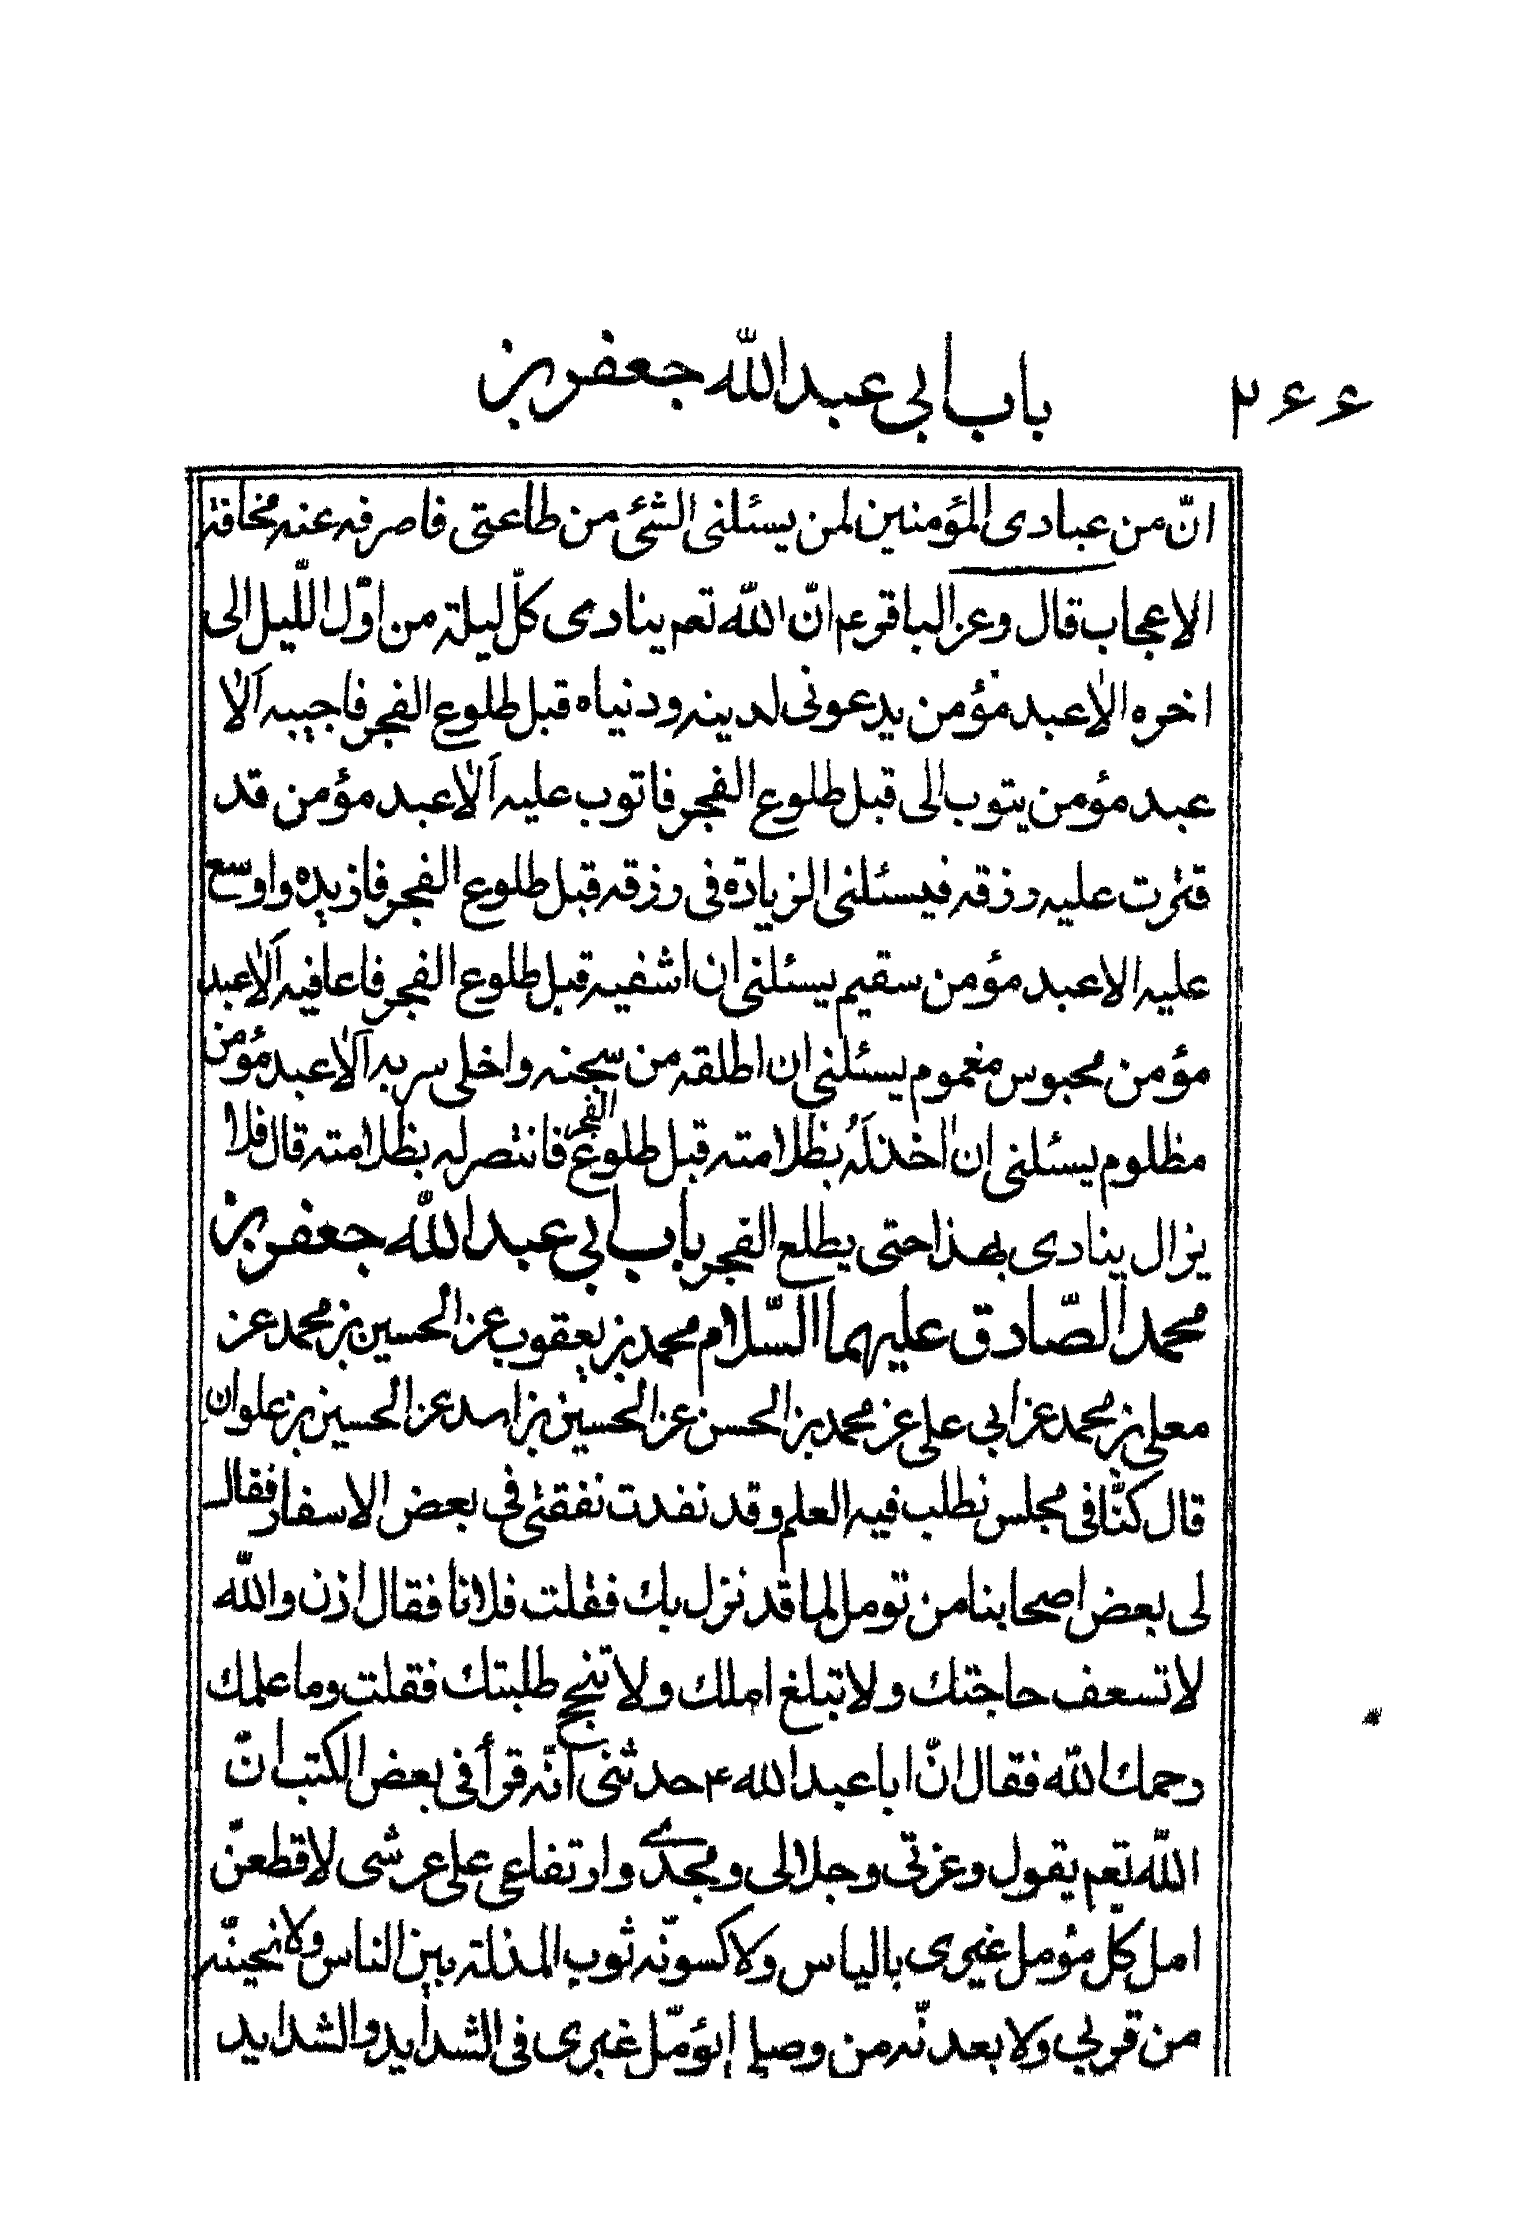 باب ابي عبد الله جعفر بن ۲۶۶
انّ من عبادى المؤمنين لمن يسئلنى الشئ من طاعتى فاصرفه عنه مخافة
الاعجاب قال وعن الباقر عم انّ الله تعم ينادى كلّ ليلة من اوّل الليل الى
اخره الا عبد مؤمن يدعونى لدينه ودنياه قبل طلوع الفجر فاجيبه الا
عبد مؤمن يتوب الى قبل طلوع الفجر فاتوب عليه الا عبد مؤمن قد
قترت عليه رزقه فيسئلنى الزيادة فى رزقه قبل طلوع الفجر فازيده واوسع
عليه الا عبد مؤمن سقيم يسئلنى ان اشفيه قبل طلوع الفجر فاعافيه الا عبد
مؤمن محبوس مغموم يسئلنى ان اطلقه من سجنه واخلى سربه الا عبد مؤمن
مظلوم يسئلنى ان اخذ له بظلامته قبل طلوع الفجر فانتصر له بظلامته قال فلا
يزال ينادى بهذا حتى يطلع الفجر باب ابي عبد الله جعفر بن
محمد الصّادق عليهما السّلام محمد بن يعقوب عن الحسين بن محمد عن
معلى بن محمد عن ابي على عن محمد بن الحسن عن الحسين بن اسد عن الحسين بن علوان
قال كنّا فى مجلس نطلب فيه العلم وقد نفدت نفقتى فى بعض الاسفار فقال
لى بعض اصحابنا من تومل لما قد نزل بك فقلت فلانا فقال اذن والله
لا تسعف حاجتك ولا تبلغ املك ولا تنجح طلبتك فقلت وما علمك
رحمك الله فقال انّ ابا عبد الله ۴ حدثنى انّه قرأ فى بعض الكتب انّ
الله تعم يقول وعزتى وجلالى ومجدى وارتفاعى على عرشى لاقطعنّ
امل كلّ مؤمل غيرى بالياس ولاكسونّه ثوب المذلة بين الناس ولانحينّه
من قربي ولابعدنّه من وصلى ايؤمّل غيرى فى الشدايد والشدايد